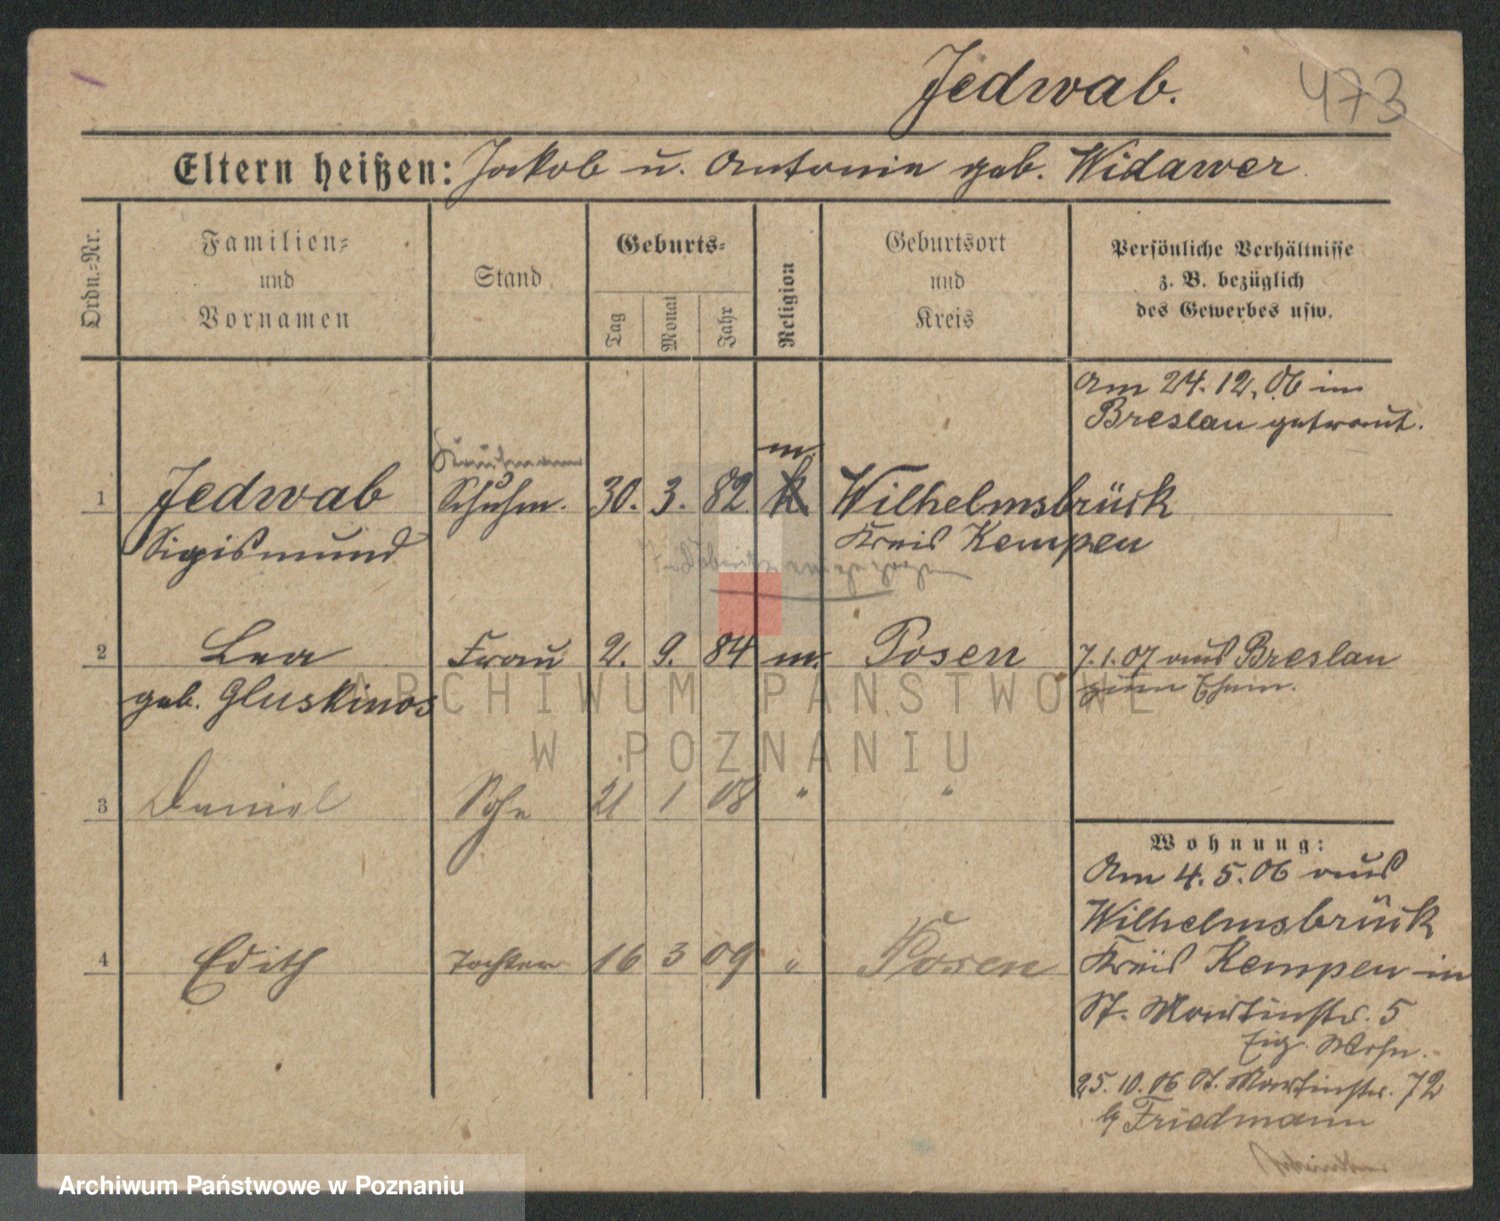 Jedwab.
473
Eltern heißen: Jakob u. Antonie geb. Widawer.
Ordn.-Nr.
Familien-
und
Vornamen
Stand
Geburts-
Tag
Monat
Jahr
Religion
Geburtsort
und
Kreis
Persönliche Verhältnisse
z. B. bezüglich
des Gewerbes usw.
Am 24. 12. 06 in
Breslau getraut.
Kaufmann
m.
1 Jedwab Schuhm. 30. 3. 82 k. Wilhelmsbrück
Sigismund Kreis Kempen
2 Lea Frau 2. 9. 84 m. Posen 7. 1. 07 aus Breslau
geb. Gluskinos zum Ehem.
3 Daniel Sohn 21 1 08 " "
4 Edith Tochter 16 3 09 " Posen
Wohnung:
Am 4. 5. 06 aus
Wilhelmsbrück
Kreis Kempen in
St. Martinstr. 5
Eig. Wohn.
25. 10. 06 St. Martinstr. 72
b/ Friedmann
ARCHIWUM PAŃSTWOWE
W POZNANIU
Archiwum Państwowe w Poznaniu